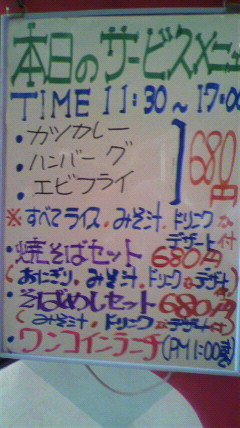 本日のサービスメニュー
TIME 11:30~17:00
・カツカレー
・ハンバーグ
・エビフライ
680円
※すべてライス・みそ汁・ドリンク
デザート付
・焼そばセット 680円
(おにぎり・みそ汁・ドリンク デザート付)
・そばめしセット 680円
(みそ汁・ドリンク デザート付)
・ワンコインランチ(PM1:00まで)